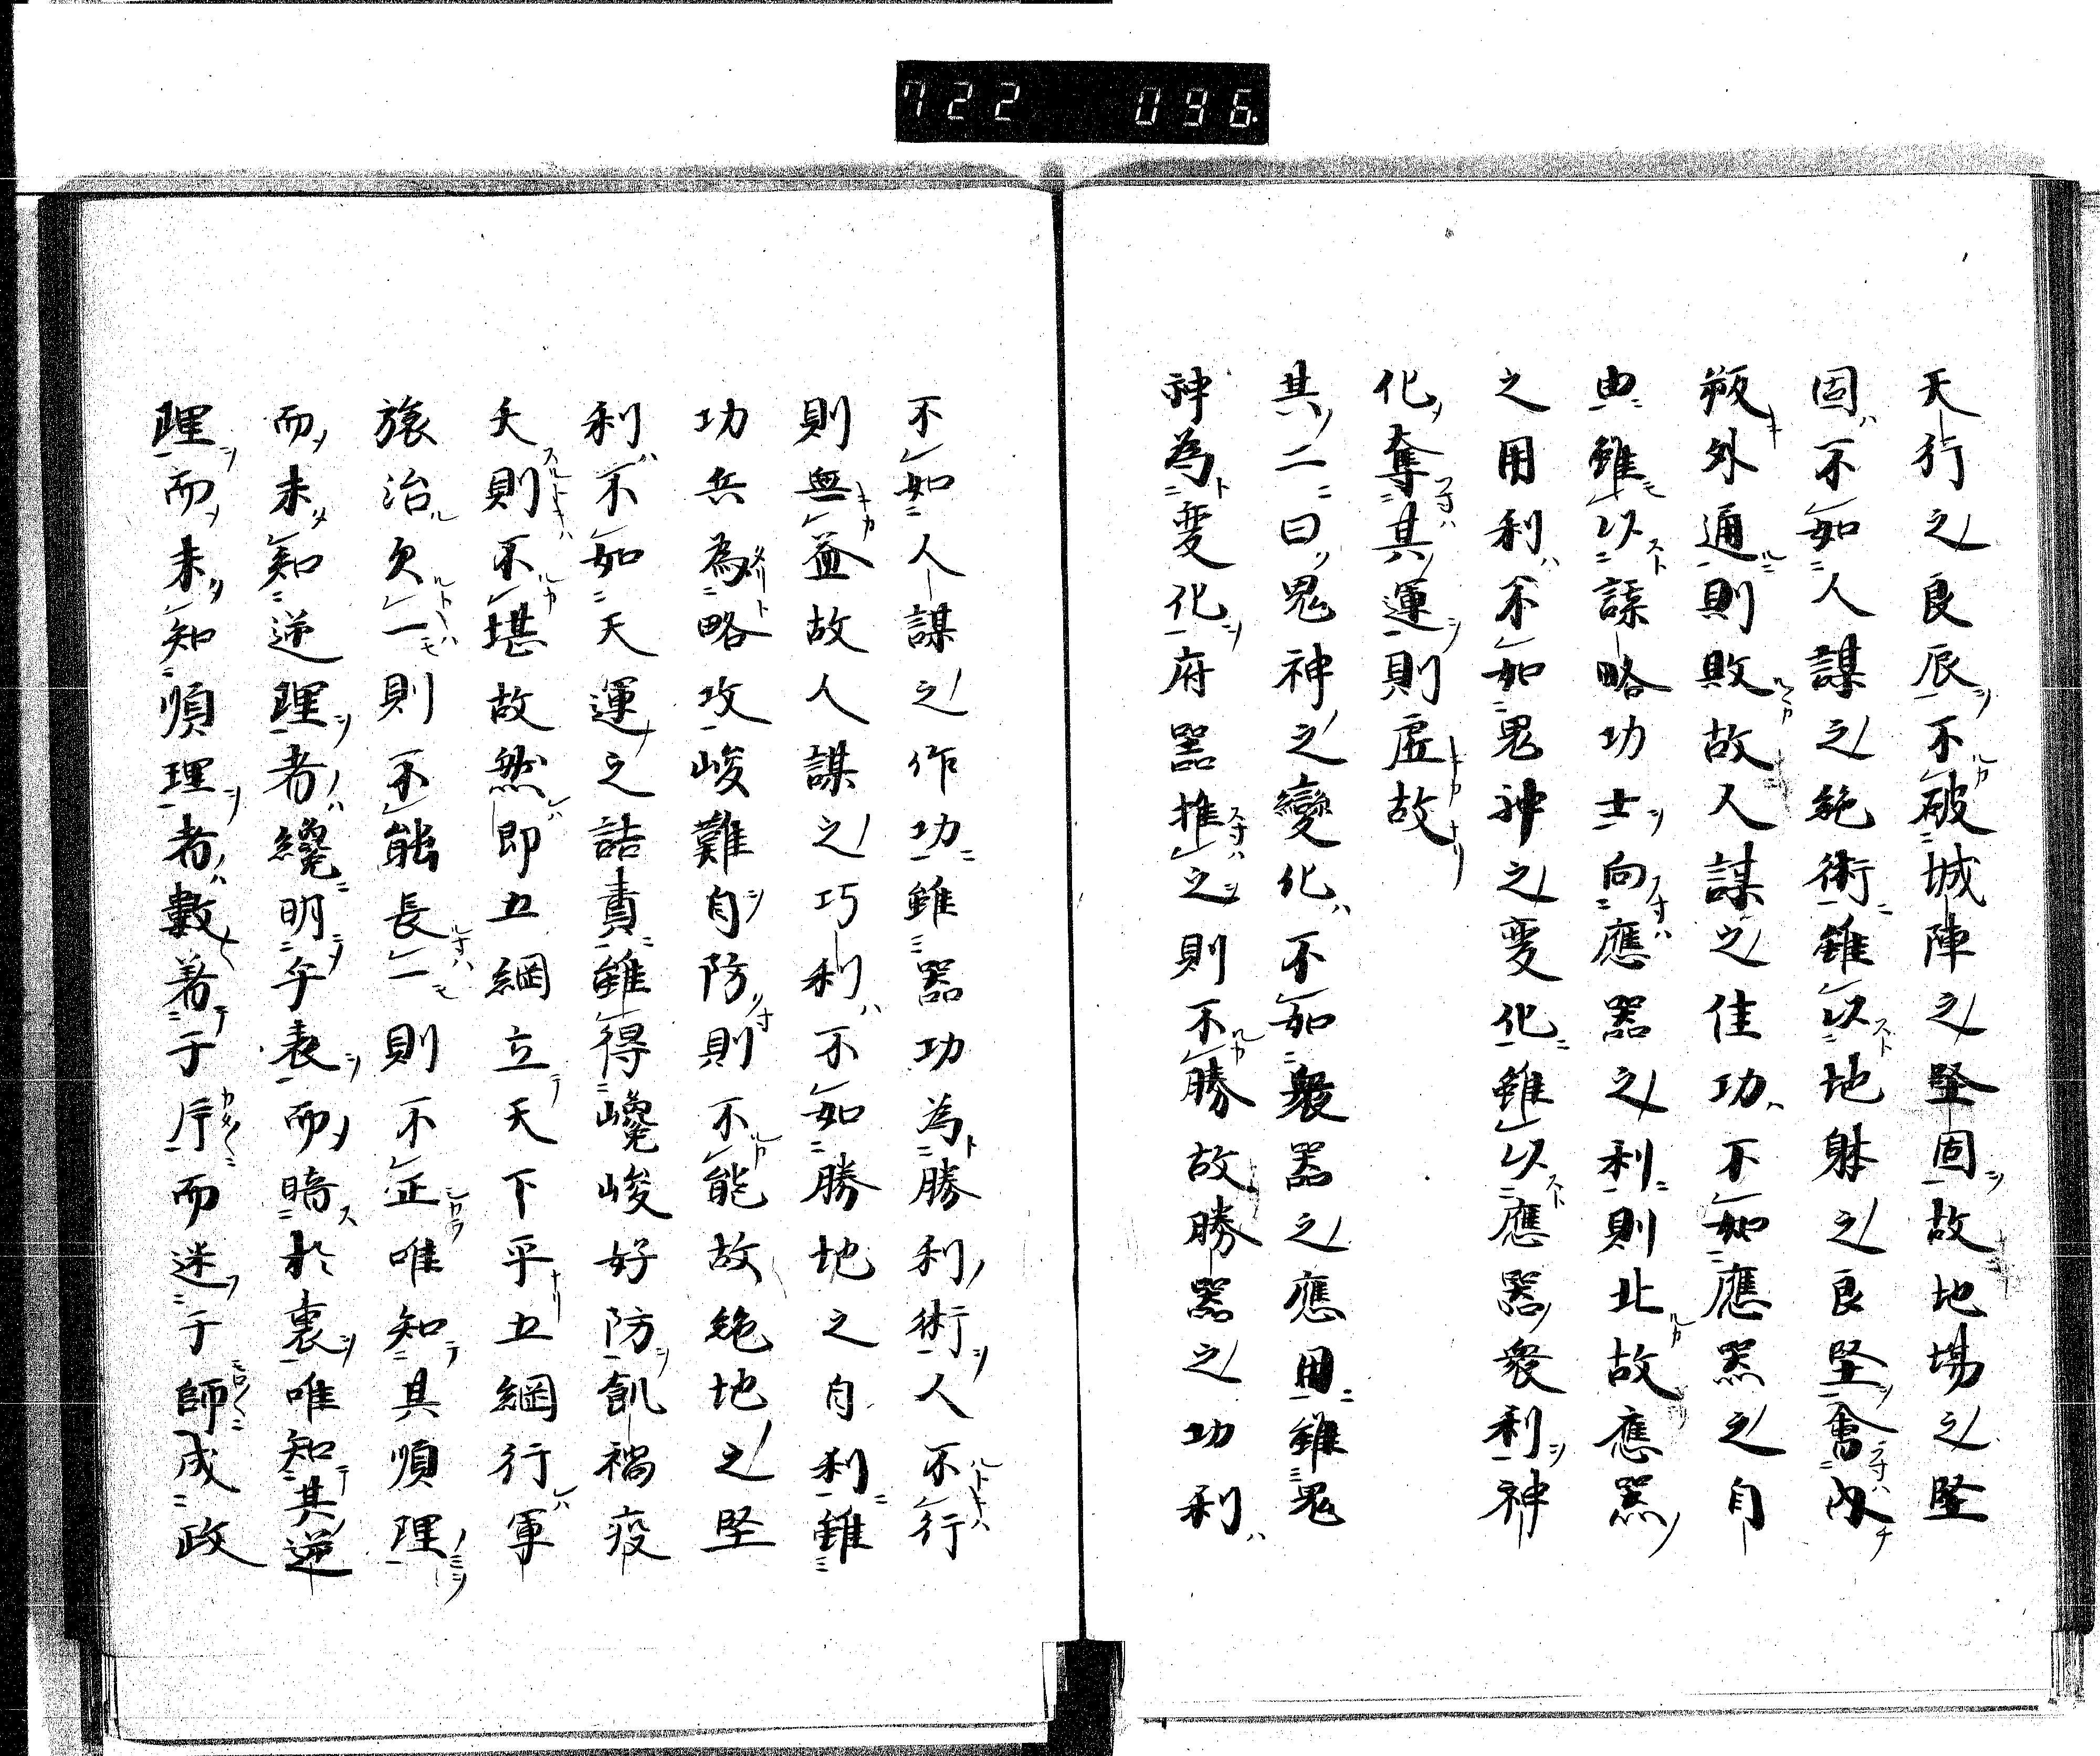 722 096
天行之良辰不破城陣之堅固故地場之堅
固不如人謀之絶術雖以地躰之良堅奮内
叛外通則敗故人謀之佳功不如應器之自
由雖以謀略功士向應器之利則北故應器
之用利不如鬼神之変化雖以應器衆利神
化奪其運則虚故
其二曰鬼神之變化不如衆器之應用雖鬼
神為変化府器推之則不勝故勝器之功利
不如人謀之作功雖器功為勝利術人不行
則無益故人謀之巧利不如勝地之自利雖
功兵為略攻峻難自防則不能故絶地之堅
利不如天運之詰責雖得巉峻好防飢禍疫
夭則不堪故然即五綱立天下平五綱行軍
旅治欠一則不能長一則不正唯知其順理
而未知逆理者纔明乎表而暗於裏唯知其逆
理而未知順理者數著于序而迷于師成政